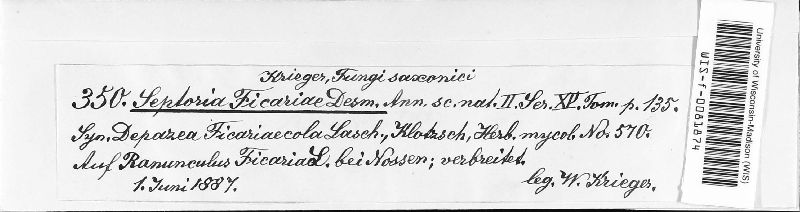 Krieger, Fungi saxonici
350. Septoria Ficariae Desm. Ann. sc. nat. II. Ser. XVI. Tom. p. 135.
Syn. Depazea Ficariaecola Lasch., Klotzsch, Herb. mycol. No. 570.
Auf Ranunculus Ficaria L. bei Nossen; verbreitet.
1. Juni 1887.
leg. W. Krieger.
University of Wisconsin-Madison (WIS)
WIS-f-0081874